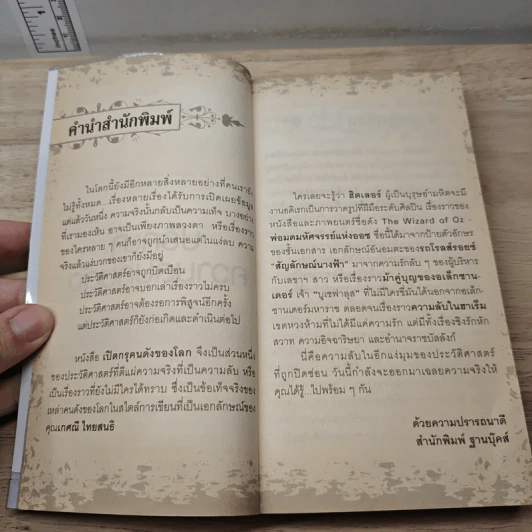 คำนำสำนักพิมพ์
ในโลกนี้ยังมีอีกหลายสิ่งหลายอย่างที่คนเรายัง
รู้ไม่ทั้งหมด...เรื่องหลายเรื่องได้รับการเปิดเผยข้อมูล
แต่แล้ววันหนึ่ง ความจริงนั้นกลับเป็นความเท็จ บางอย่าง
ที่เรามองเห็น อาจเป็นเพียงภาพลวงตา หรือเรื่องราว
ของใครหลาย ๆ คนก็อาจถูกนำเสนอแต่ในแง่ลบ ความ
จริงแล้วแง่บวกของเขาก็ยังมีอยู่
ประวัติศาสตร์อาจถูกบิดเบือน
ประวัติศาสตร์อาจบอกเล่าเรื่องราวไม่ครบ
ประวัติศาสตร์อาจต้องรอการพิสูจน์อีกครั้ง
แต่ประวัติศาสตร์ก็ยังก่อเกิดและดำเนินต่อไป
หนังสือ เปิดกรุคนดังของโลก จึงเป็นส่วนหนึ่ง
ของประวัติศาสตร์ที่ตีแผ่ความจริงที่เป็นความลับ หรือ
เป็นเรื่องราวที่ยังไม่มีใครได้ทราบ ซึ่งเป็นข้อเท็จจริงของ
เหล่าคนดังของโลกในสไตล์การเขียนที่เป็นเอกลักษณ์ของ
คุณเกศณี ไทยสนธิ
ใครเลยจะรู้ว่า ฮิตเลอร์ ผู้เป็นบุรุษอำมหิตจะมี
งานอดิเรกเป็นการวาดรูปที่ฝีมือระดับศิลปิน เรื่องราวของ
หนังสือและภาพยนตร์ชื่อดัง The Wizard of Oz -
พ่อมดมหัศจรรย์แห่งออซ ชื่อนี้ได้มาจากป้ายตัวอักษร
ของชั้นเอกสาร เอกลักษณ์อันอมตะของรถโรลส์รอยซ์
"สัญลักษณ์นางฟ้า" มาจากความรักลับ ๆ ของผู้บริหาร
กับเลขาฯ สาว หรือเรื่องราวม้าคู่บุญของอเล็กซาน-
เดอร์ เจ้า "บูเซฟาลุส" ที่ไม่มีใครขี่มันได้นอกจากอเล็ก-
ซานเดอร์มหาราช ตลอดจนเรื่องราวความลับในฮาเร็ม
เขตหวงห้ามที่ไม่ได้มีแค่ความรัก แต่มีทั้งเรื่องชิงรักหัก
สวาท ความอิจฉาริษยา และอำนาจราชบัลลังก์
นี่คือความลับในอีกแง่มุมของประวัติศาสตร์
ที่ถูกปิดซ่อน วันนี้กำลังจะออกมาเฉลยความจริงให้
คุณได้รู้...ไปพร้อม ๆ กัน
ด้วยความปรารถนาดี
สำนักพิมพ์ ฐานบุ๊คส์